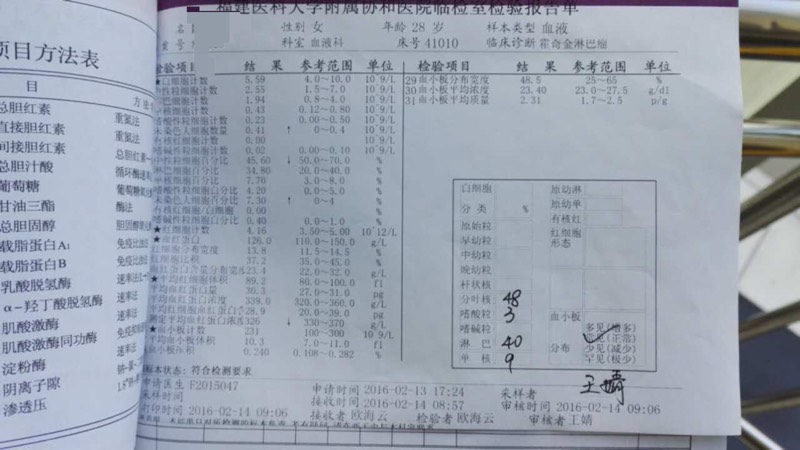 福建医科大学附属协和医院临检室检验报告单
性别 女 年龄 28 岁 样本类型 血液
科室 血液科 床号 41010 临床诊断 霍奇金淋巴瘤
检验项目 结 果 参考范围 单位 检验项目 结 果 参考范围 单位
白细胞计数 5.59 4.0~10.0 10^9/L 29 血小板分布宽度 48.5 25~65 %
中性粒细胞计数 2.55 1.5~7.0 10^9/L 30 血小板平均浓度 23.40 23.0~27.5 g/dl
淋巴细胞计数 1.94 0.8~4.0 10^9/L 31 血小板平均质量 2.31 1.7~2.5 p/g
单核细胞计数 0.43 0.12~0.80 10^9/L
嗜酸性粒细胞计数 0.23 0.00~0.50 10^9/L
未染色大细胞数量 0.41 ↑ 0~0.4 10^9/L
有核红细胞计数 0.00 10^9/L
嗜碱性粒细胞计数 0.02 0.00~0.10 10^9/L
中性粒细胞百分比 45.60 ↓ 50.0~70.0 %
淋巴细胞百分比 34.80 20.0~40.0 %
单核细胞百分比 7.70 3.0~8.0 %
嗜酸性粒细胞百分比 4.20 0.5~5.0 %
未染色大细胞百分比 7.30 ↑ 0~4 %
有核红细胞/白细胞 0.00 %
嗜碱性粒细胞百分比 0.40 0.0~1.0 %
★红细胞计数 4.16 3.50~5.00 10^12/L
★血红蛋白 126.0 110.0~150.0 g/L
红细胞分布宽度 13.8 11.5~14.5 %
红细胞比积 37.2 35.0~45.0 %
血红蛋白含量分布宽度 23.4 22.0~32.0 g/L
★平均红细胞体积 89.2 80.0~100.0 fl
平均血红蛋白量 30.3 27.0~31.0 pg
平均血红蛋白浓度 339.0 320.0~360.0 g/L
28.9 20.0~39.0 pg
测定平均血红蛋白浓度 326 ↓ 330~370 g/L
★血小板计数 231 100~300 10^9/L
平均血小板体积 10.3 7.0~11.0 fl
血小板压积 0.240 0.108~0.282 %
白细胞 原幼淋
分 类 % 原幼单
原始粒 有核红
早幼粒 红细胞
中幼粒 形态
晚幼粒
杆状核
分叶核 48
嗜酸粒 3 血小板
嗜碱粒 多见(增多)
淋 巴 40 常见(正常)
分布 少见(减少)
单 核 9 罕见(极少)
标本状态：符合检测要求
申请医生 F2015047 申请时间 2016-02-13 17:24 采样者 王婧
采样时间 接收时间 2016-02-14 08:57 审核时间 2016-02-14 09:06
打印时间 2016-02-14 09:06 接收者 欧海云 检验者 欧海云 审核者 王婧
项目方法表
目
总胆红素 重氮法
直接胆红素 重氮法
间接胆红素
总胆汁酸 循环酶速率
葡萄糖 葡萄糖氧化
甘油三酯 酶法
总胆固醇 胆固醇氧化
载脂蛋白A₁ 免疫比浊法
载脂蛋白B 免疫比浊法
乳酸脱氢酶 速率法
α-羟丁酸脱氢酶 速率法
肌酸激酶 速率法
肌酸激酶同功酶
淀粉酶
阴离子隙
渗透压